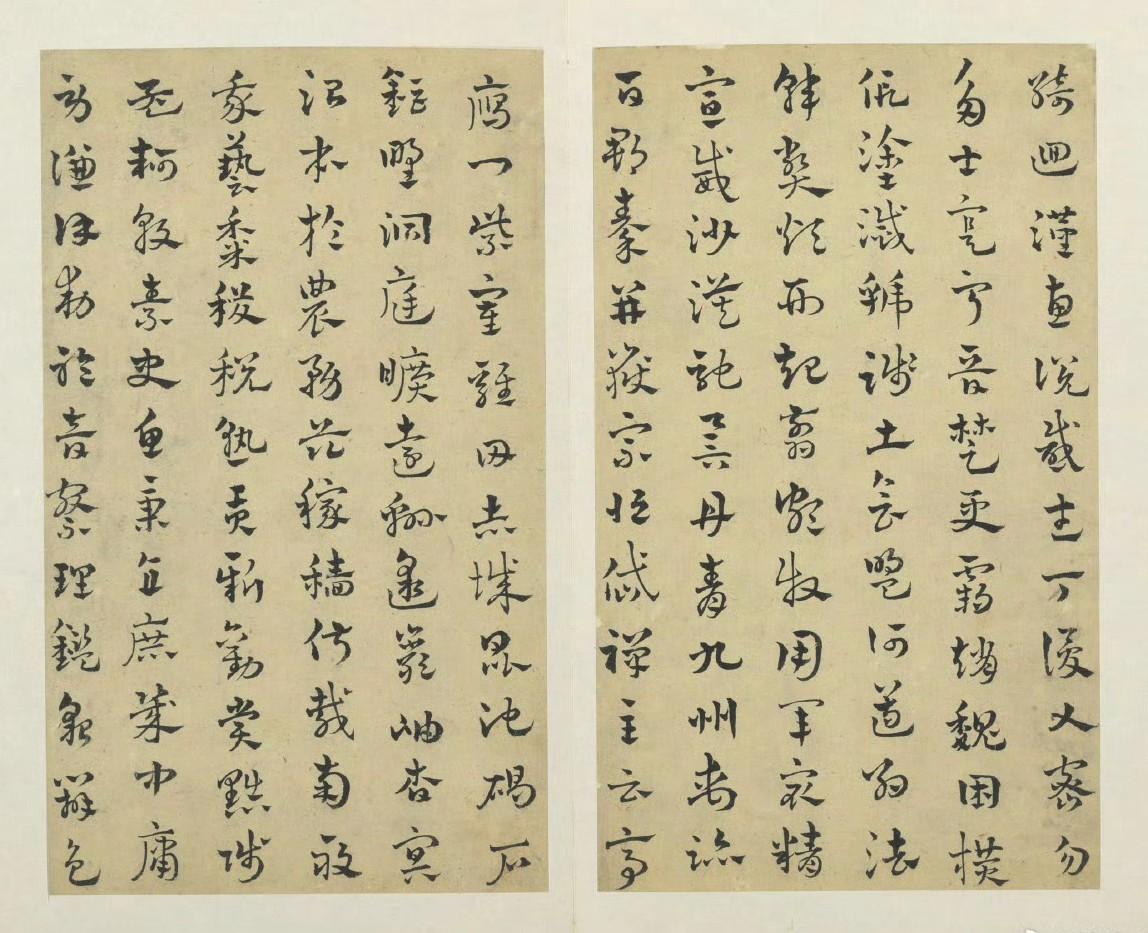 綺迴漢惠說感武丁俊乂密勿
多士寔寧晉楚更霸趙魏困橫
假塗滅虢踐土會盟何遵約法
韓弊煩刑起翦頗牧用軍最精
宣威沙漠馳譽丹青九州禹跡
百郡秦并嶽宗恆岱禪主云亭
鴈門紫塞雞田赤城昆池碣石
鉅野洞庭曠遠綿邈巖岫杳冥
治本於農務茲稼穡俶載南畝
我藝黍稷稅熟貢新勸賞黜陟
孟軻敦素史魚秉直庶幾中庸
勞謙謹敕聆音察理鑑貌辨色